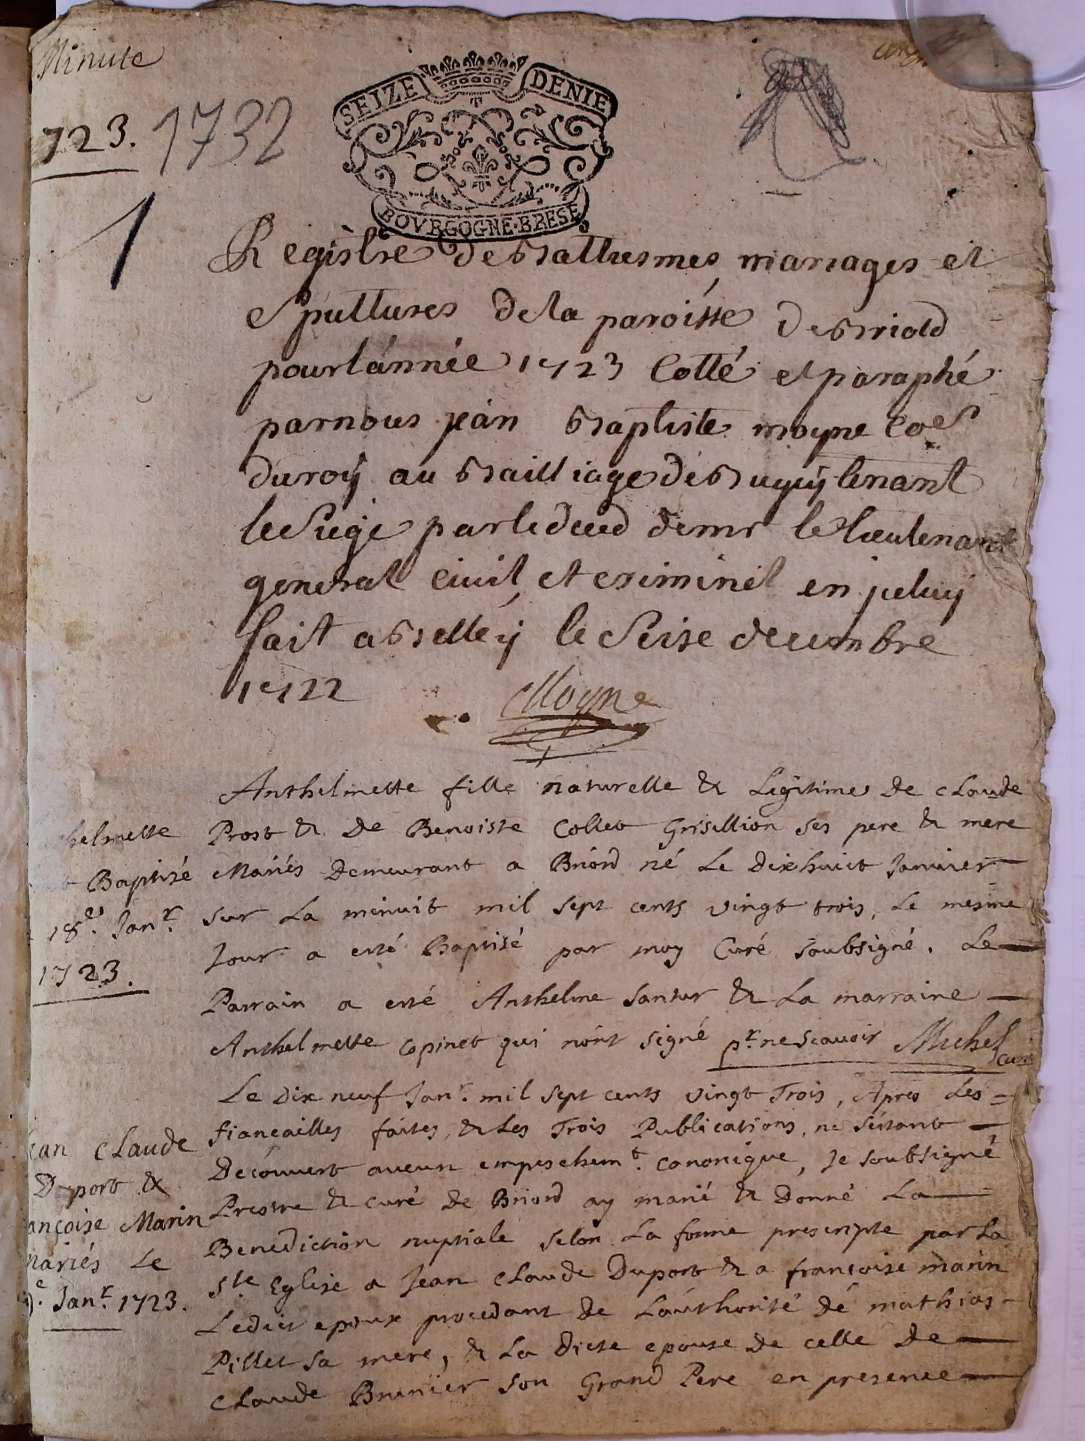 Minute
723. 1732
1
SEIZE DENIE
BOVRGOGNE·BRESE
Registre de Battesmes mariages et
Spultures de la paroisse de Briord
pour l'année 1723 Cotté et paraphé
par nous jean Baptiste moyne Coer
du roy au Bailliage de Bugey tenant
le Siege par le deced de mr le lieutenant
general civil et criminel en jceluy
fait a Belley le Seise decembre
1722 Moyne
Anthelmette fille naturelle & Legitime de cLaude
Prost & De Benoiste Collet Grisellion ses pere & mere
Mariés Demeurant a Briord né Le dixhuict Janvier
sur La minuit mil sept cents vingt trois, Le mesme
Jour a esté Baptisé par moy Curé soubsigné. Le
Parrain a esté Anthelme santur & La marraine
Anthelmette Copinet qui n'ont signé pr. ne scavoir Michel curé
helmette
Baptisé
18e. Janr.
1723.
Le Dix neuf Janr. mil sept cents vingt Trois, Apres Les
fiancailles faites, & Les Trois Publications, ne s'éstant
Découvert aucun empeschemt. canonique, Je soubsigné
Prestre & curé de Briord ay marié & Donné La
Benediction nuptiale selon La forme prescripte par La
ste Eglise a Jean cLaude Duport & a francoise marin
Ledict epoux procedant de L'authorité de mathias
Pillet sa mere, & La Dicte epouse de celle De
cLaude Brunier son Grand Pere en presence
ean cLaude
Duport &
ancoise Marin
mariés Le
9e Janr. 1723.